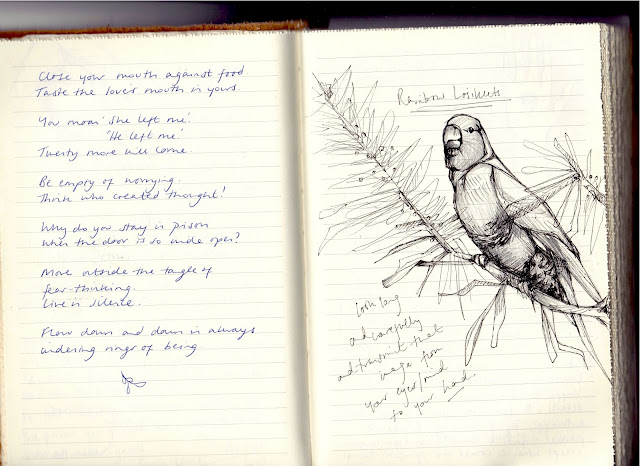 Close your mouth against food
Taste the lover's mouth in yours
You moan 'She left me!'
'He left me!'
Twenty more will come.
Be empty of worrying.
Think who created thought!
Why do you stay in prison
when the door is so wide open?
Move outside the tangle of
fear-thinking.
Live in silence.
Flow down and down in always
widening rings of being
Rainbow Lorikeets
Look long
and carefully
and transmit that
image from
your eyes/mind
to your hand.